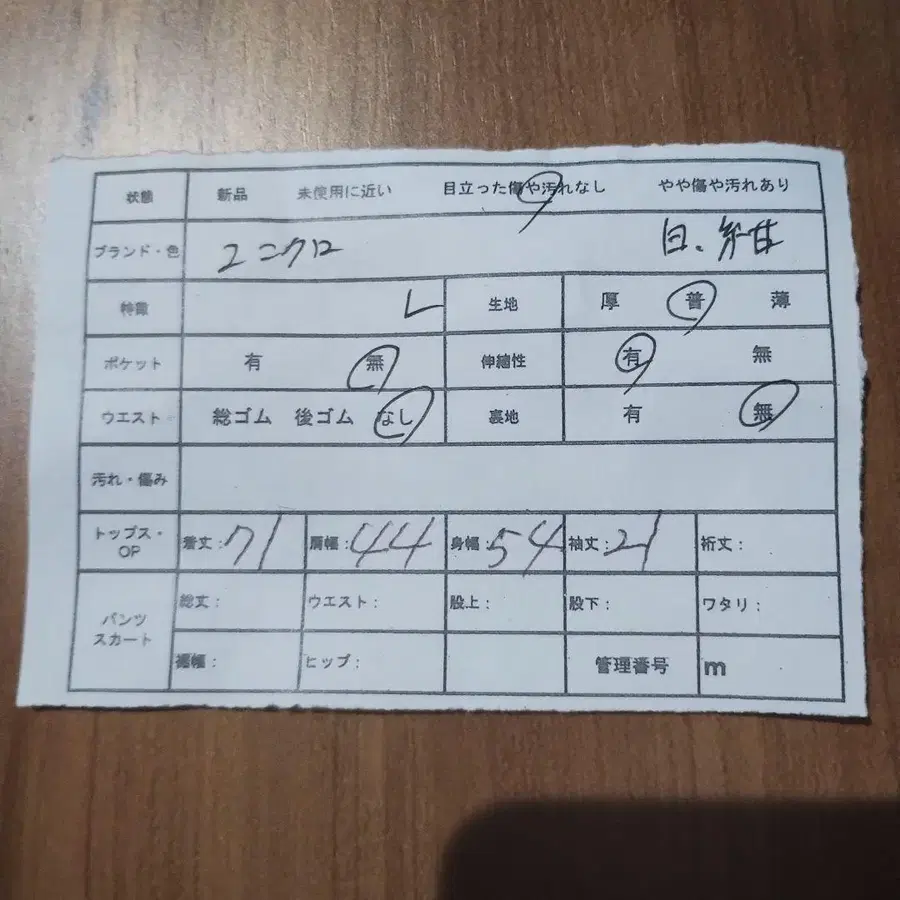 状態 新品 未使用に近い 目立った傷や汚れなし やや傷や汚れあり
ブランド・色 ユニクロ 白、紺
特徴 L 生地 厚 普 薄
ポケット 有 無 伸縮性 有 無
ウエスト 総ゴム 後ゴム なし 裏地 有 無
汚れ・傷み
トップス・OP 着丈:71 肩幅:44 身幅:54 袖丈:21 裄丈:
パンツ スカート 総丈: ウエスト: 股上: 股下: ワタリ:
裾幅: ヒップ: 管理番号 m